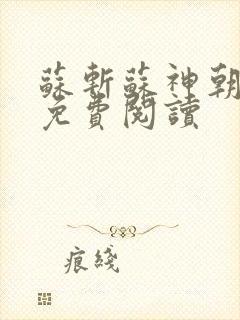 蘇斬蘇神朝
免費閱讀
痕綫